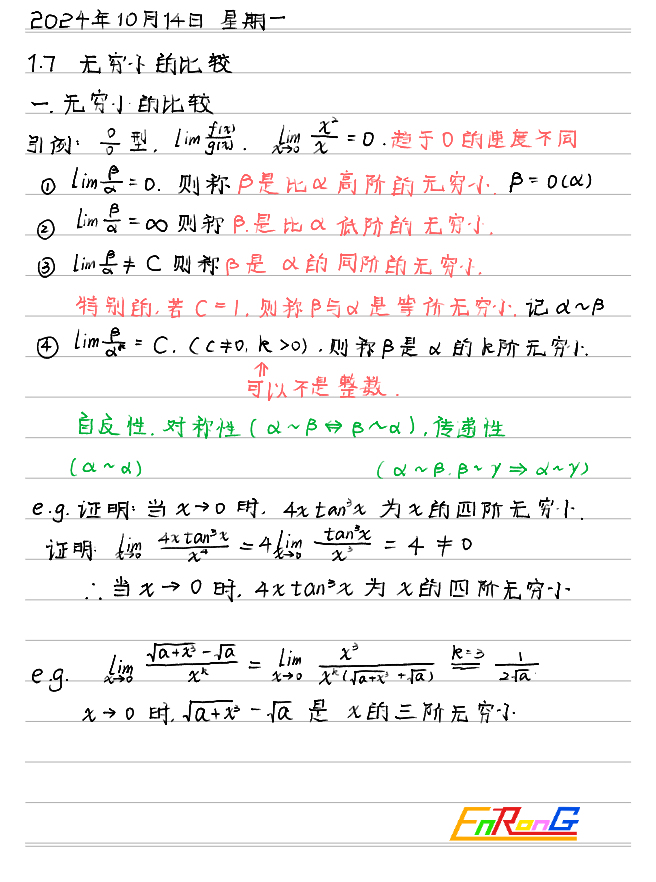 2024年10月14日 星期一
1.7 无穷小的比较
一.无穷小的比较
引例: 0/0 型, lim f(x)/g(x). lim x→0 x²/x = 0. 趋于0的速度不同
① lim β/α = 0. 则称 β是比α高阶的无穷小. β=0(α)
② lim β/α = ∞ 则称 β.是比α低阶的无穷小.
③ lim β/α ≠ C 则称 β是 α的同阶的无穷小.
特别的,若C=1,则称β与α是等价无穷小. 记α~β
④ lim β/αᵏ = C. (c≠0, k>0). 则称β是α的k阶无穷小.
⇑
可以不是整数.
自反性. 对称性(α~β⇔β~α), 传递性
(α~α) (α~β.β~γ⇒α~γ)
e.g. 证明: 当x→0时, 4xtan³x 为x的四阶无穷小.
证明: lim x→0 4xtan³x/x⁴ = 4 lim x→0 tan³x/x³ = 4 ≠ 0
∴ 当x→0时, 4xtan³x 为x的四阶无穷小
e.g. lim x→0 (√(a+x³) - √a)/xᵏ = lim x→0 x³/(xᵏ(√(a+x³) + √a)) k=3 1/(2√a)
x→0时, √(a+x³) - √a 是 x的三阶无穷小
EnRonG